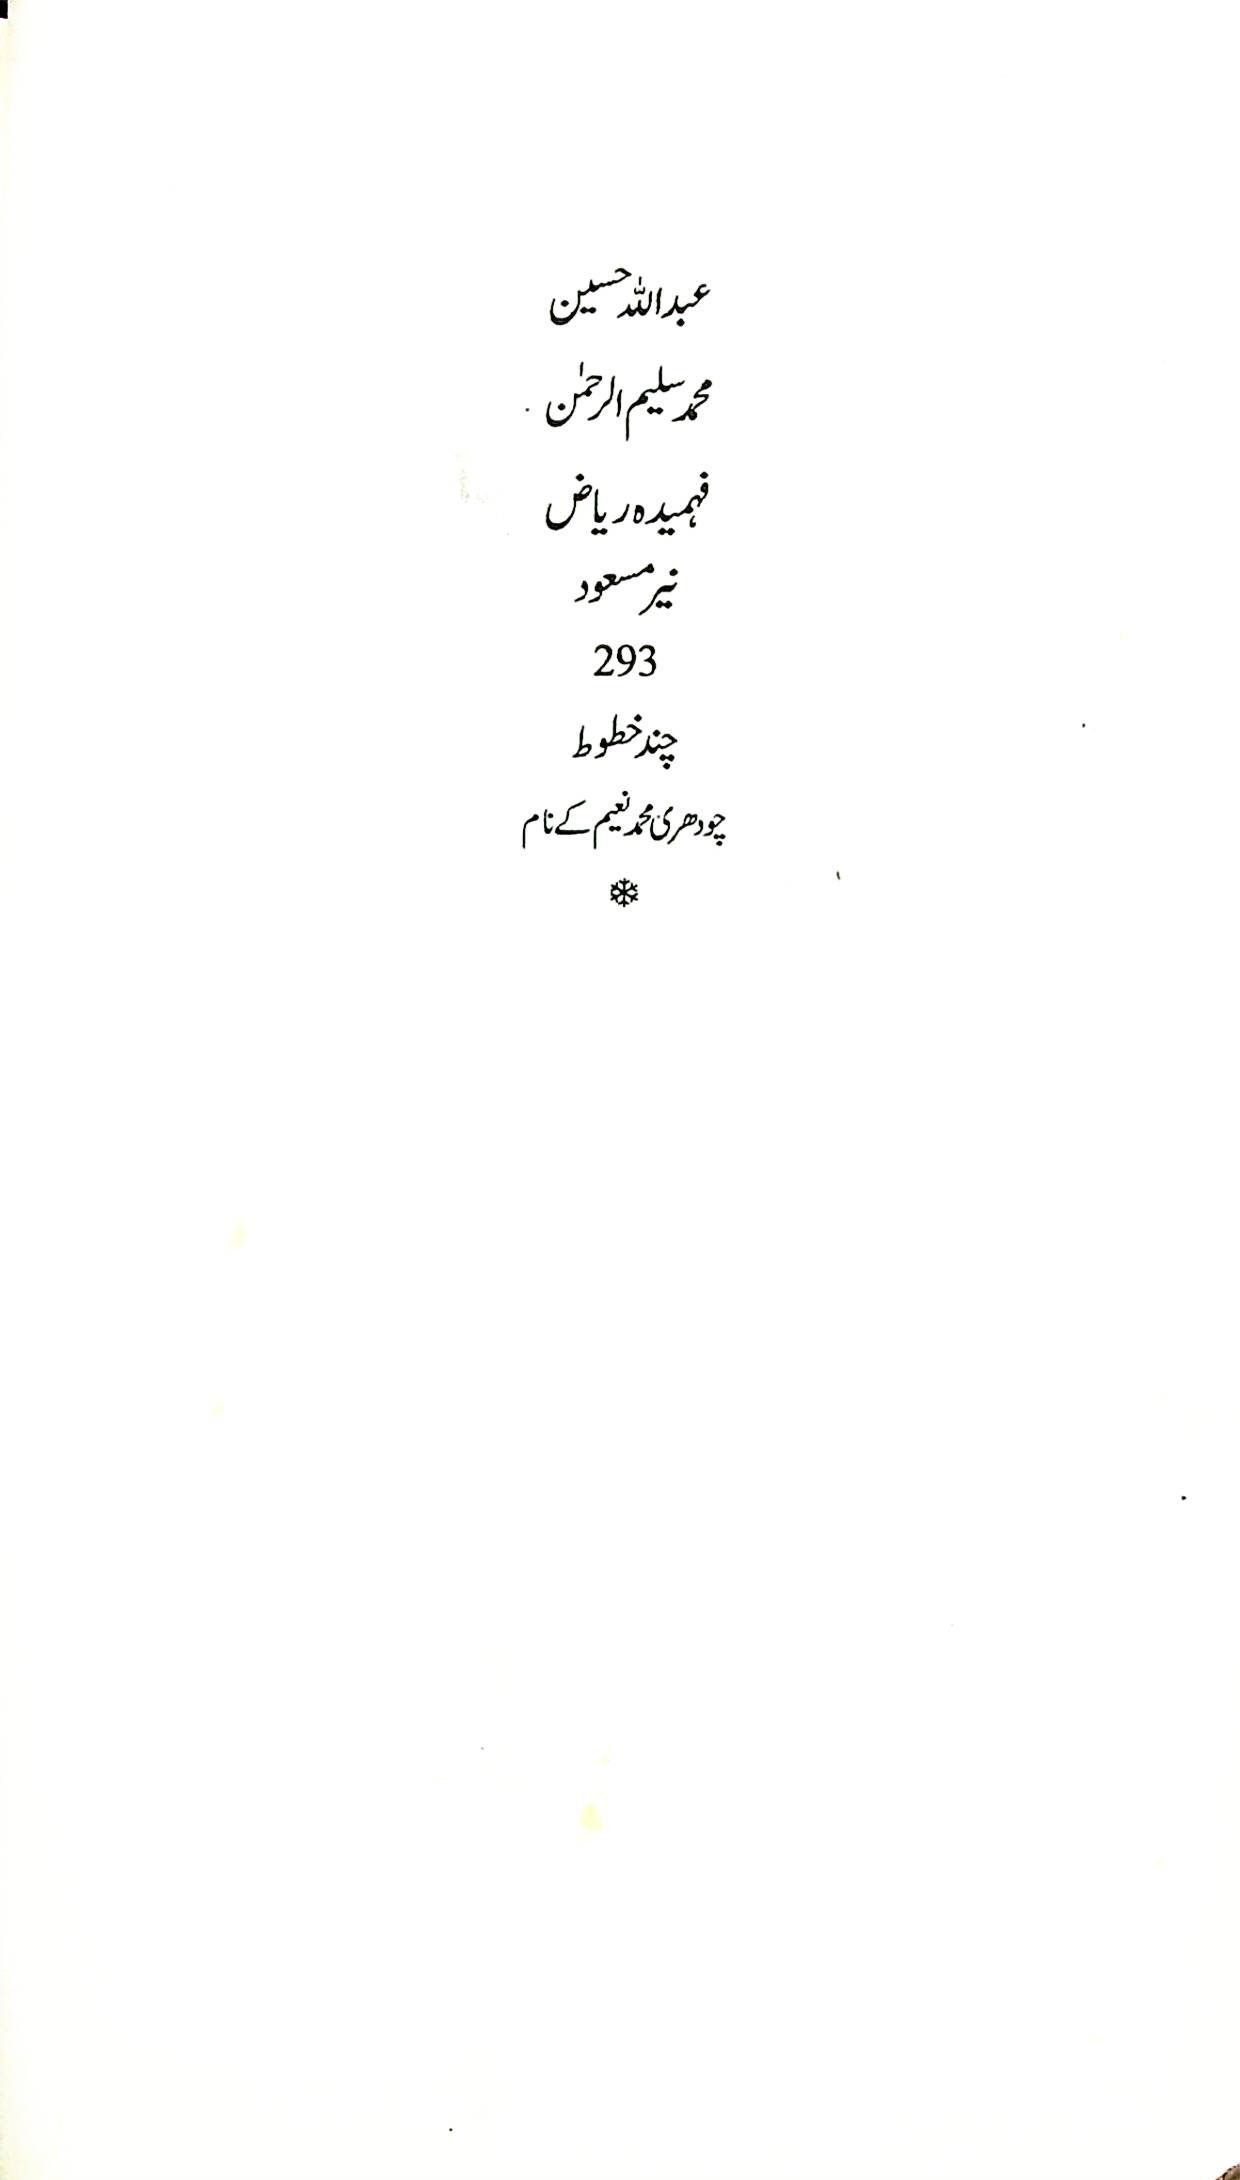 عبداللہ حسین
محمد سلیم الرحمٰن
فہمیدہ ریاض
نیر مسعود
293
چند خطوط
چودھری محمد نعیم کے نام